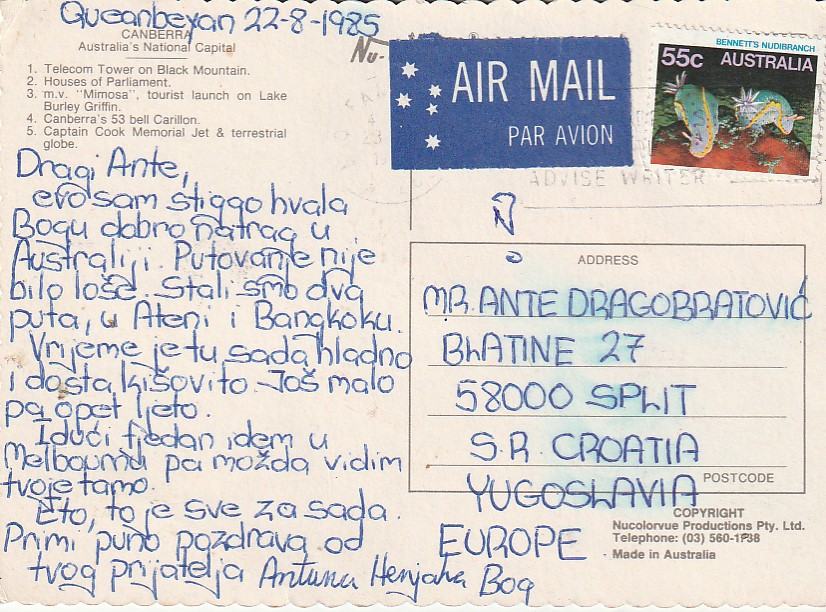 Queanbeyan 22-8-1985
CANBERRA
Australia's National Capital
1. Telecom Tower on Black Mountain.
2. Houses of Parliament.
3. m.v. "Mimosa", tourist launch on Lake
Burley Griffin.
4. Canberra's 53 bell Carillon.
5. Captain Cook Memorial Jet & terrestrial
globe.
Dragi Ante,
evo sam stiggo hvala
Bogu dobro natrag u
Australiji. Putovanje nije
bilo loše. Stali smo dva
puta, u Ateni i Bangkoku.
Vrijeme je tu sada hladno
i dosta kišovito. Još malo
pa opet ljeto.
Idući tjedan idem u
Melbourna pa možda vidim
tvoje tamo.
Eto, to je sve za sada.
Primi puno pozdrava od
tvog prijatelja Antuna Bog
Nu-
AIR MAIL
PAR AVION
BENNETT'S NUDIBRANCH
55c AUSTRALIA
ADVISE WRITER
ADDRESS
MR. ANTE DRAGOBRATOVIĆ
BLATINE 27
58000 SPLIT
S.R. CROATIA
YUGOSLAVIA
POSTCODE
EUROPE
COPYRIGHT
Nucolorvue Productions Pty. Ltd.
Telephone: (03) 560-1
Made in Australia